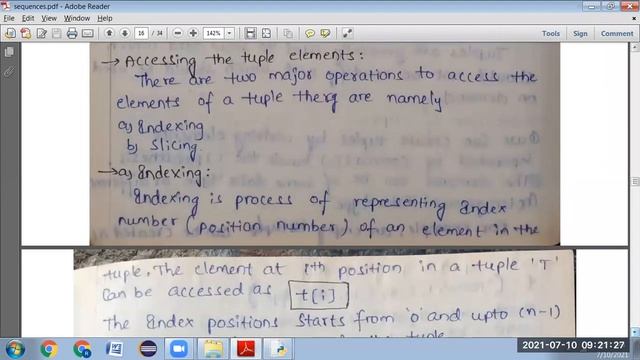 sequences.pdf - Adobe Reader
File Edit View Window Help
16 / 34 142%
Tools Sign Comment
→ Accessing the tuple elements:
There are two major operations to access the
elements of a tuple they are namely
a) Indexing
b) Slicing.
→ a) Indexing:
Indexing is process of representing Index
number (position number) of an element in the
tuple. The element at ith position in a tuple 'T'
Can be accessed as t[i]
The Index positions starts from '0' and upto (n-1)
2021-07-10 09:21:27
7/10/2021